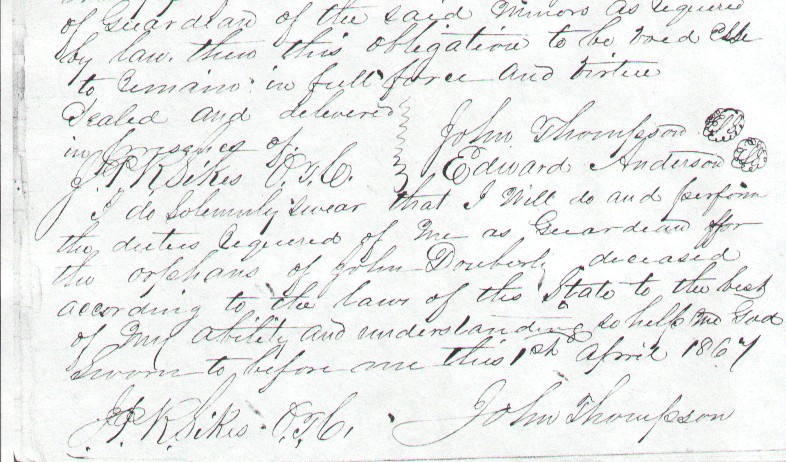 of Guardian of the said Minors as required
by law. then this obligation to be void else
to remain in full force and virtue
Sealed and delivered
in presence of. John Thompson LS
J. P. K Sikes O.T.C. Edward Anderson LS
I do Solemnly swear that I Will do and perform
the duties required of me as Guardian for
the orphans of John Douberly deceased
according to the laws of this State to the best
of my ability and understanding so help me God
Sworn to before me this 1st April 1867
J. P. K Sikes O.T.C. John Thompson